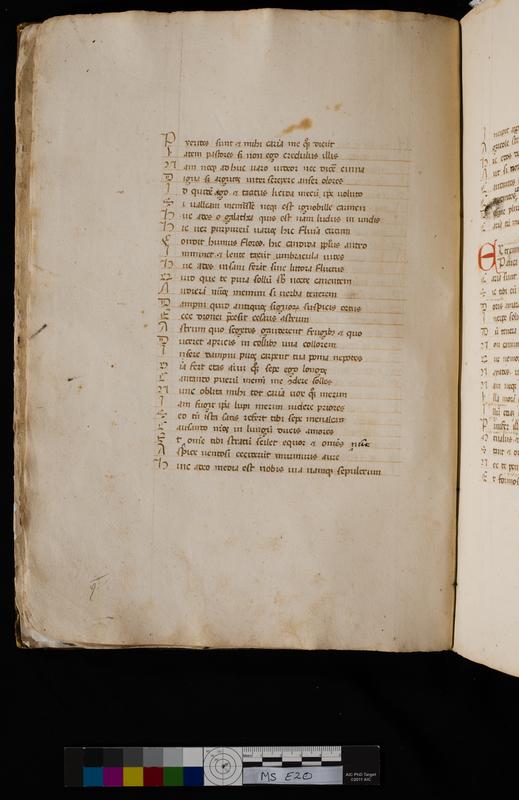 P yerides sunt ⁊ mihi carīa me q̄ȝ dicūt
V atem pastores s; non ego credulus illis
N am neq; adhuc uaro uideor nec dicē cinna
D igna sed argutos inter strepere anser olores
I d quidē ago ⁊ tacitus licida mecū ip̄e uoluto
S i ualleam meminisse neq; est ignobille carmen
H uc ades o galathea quis est nam ludus in undis
H ic uer purpureū uarios hic flumīa circum
F ondit humus flores. hic candida populus antro
I mminet ⁊ lente texūt umbracula uites
H uc ades insani feriāt sine littora fluctus
Q uid que te pura sollū sub nocte canentem
A udierā nūeros memini si uerba tenerem
D ampni quid antiquos signorū suspicis ortus
E cce dionei processit cesaris astrum
A strum quo segetes gauderent frugibus ⁊ quo
D uceret apricis in collibus uua collorem
I nsere dampni piros carpent tua poma nepotes
O īa fert etas aīum q̄ȝ sepe ego longos
C antando puerū memī me cōdere solles
N unc oblita mihi tot carīa uox q̄ȝ merim
I am fugit ip̄a lupi merim uidere priores
S ed tā̄ ista satis refert tibi sepe menalcas
C ausando nr̄os in longū ducis amores
E t nunc omē tibi stratū scilet equor ⁊ omēs
A spice uentosi ceciderūt murmuris aure
H inc adeo media est nobis uia namq; sepulcrum
MS E20
AIC PhD Target
©2011 AIC